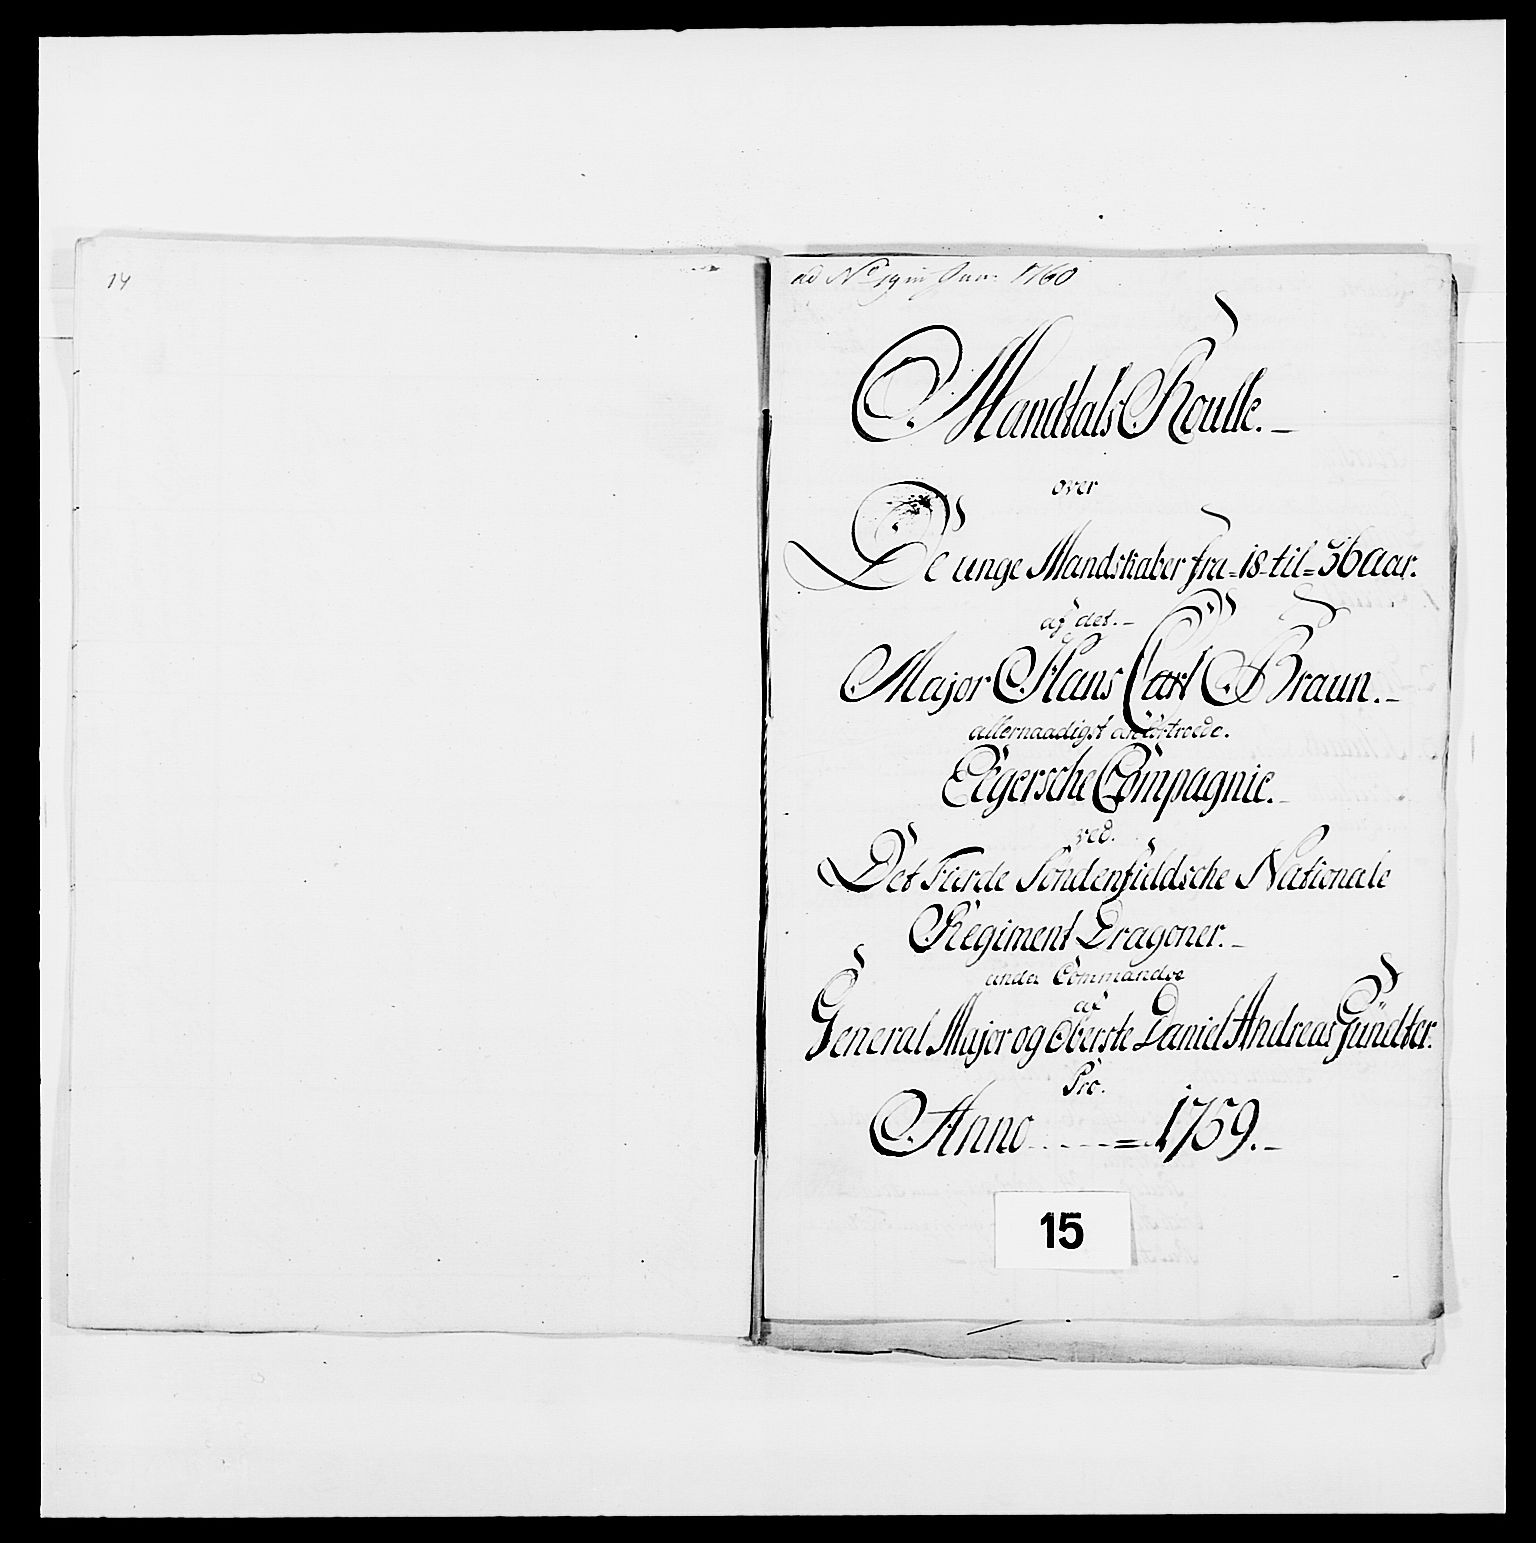 14
ad No 19 in Jun: 1760
Mandtals Roulle.
over
De unge Mandskaber fra = 18 - til = 36 aar.
af det.
Major Hans Carl Braun.
allernaadigst anfortroede.
Eegersche Compagnie.
ved.
Det Fierde Söndenfieldsche Nationale
Regiment Dragoner.
under Commando
af
General Major og Oberste Daniel Andreas Gündter.
Pro.
Anno - - - - = 1759.
15